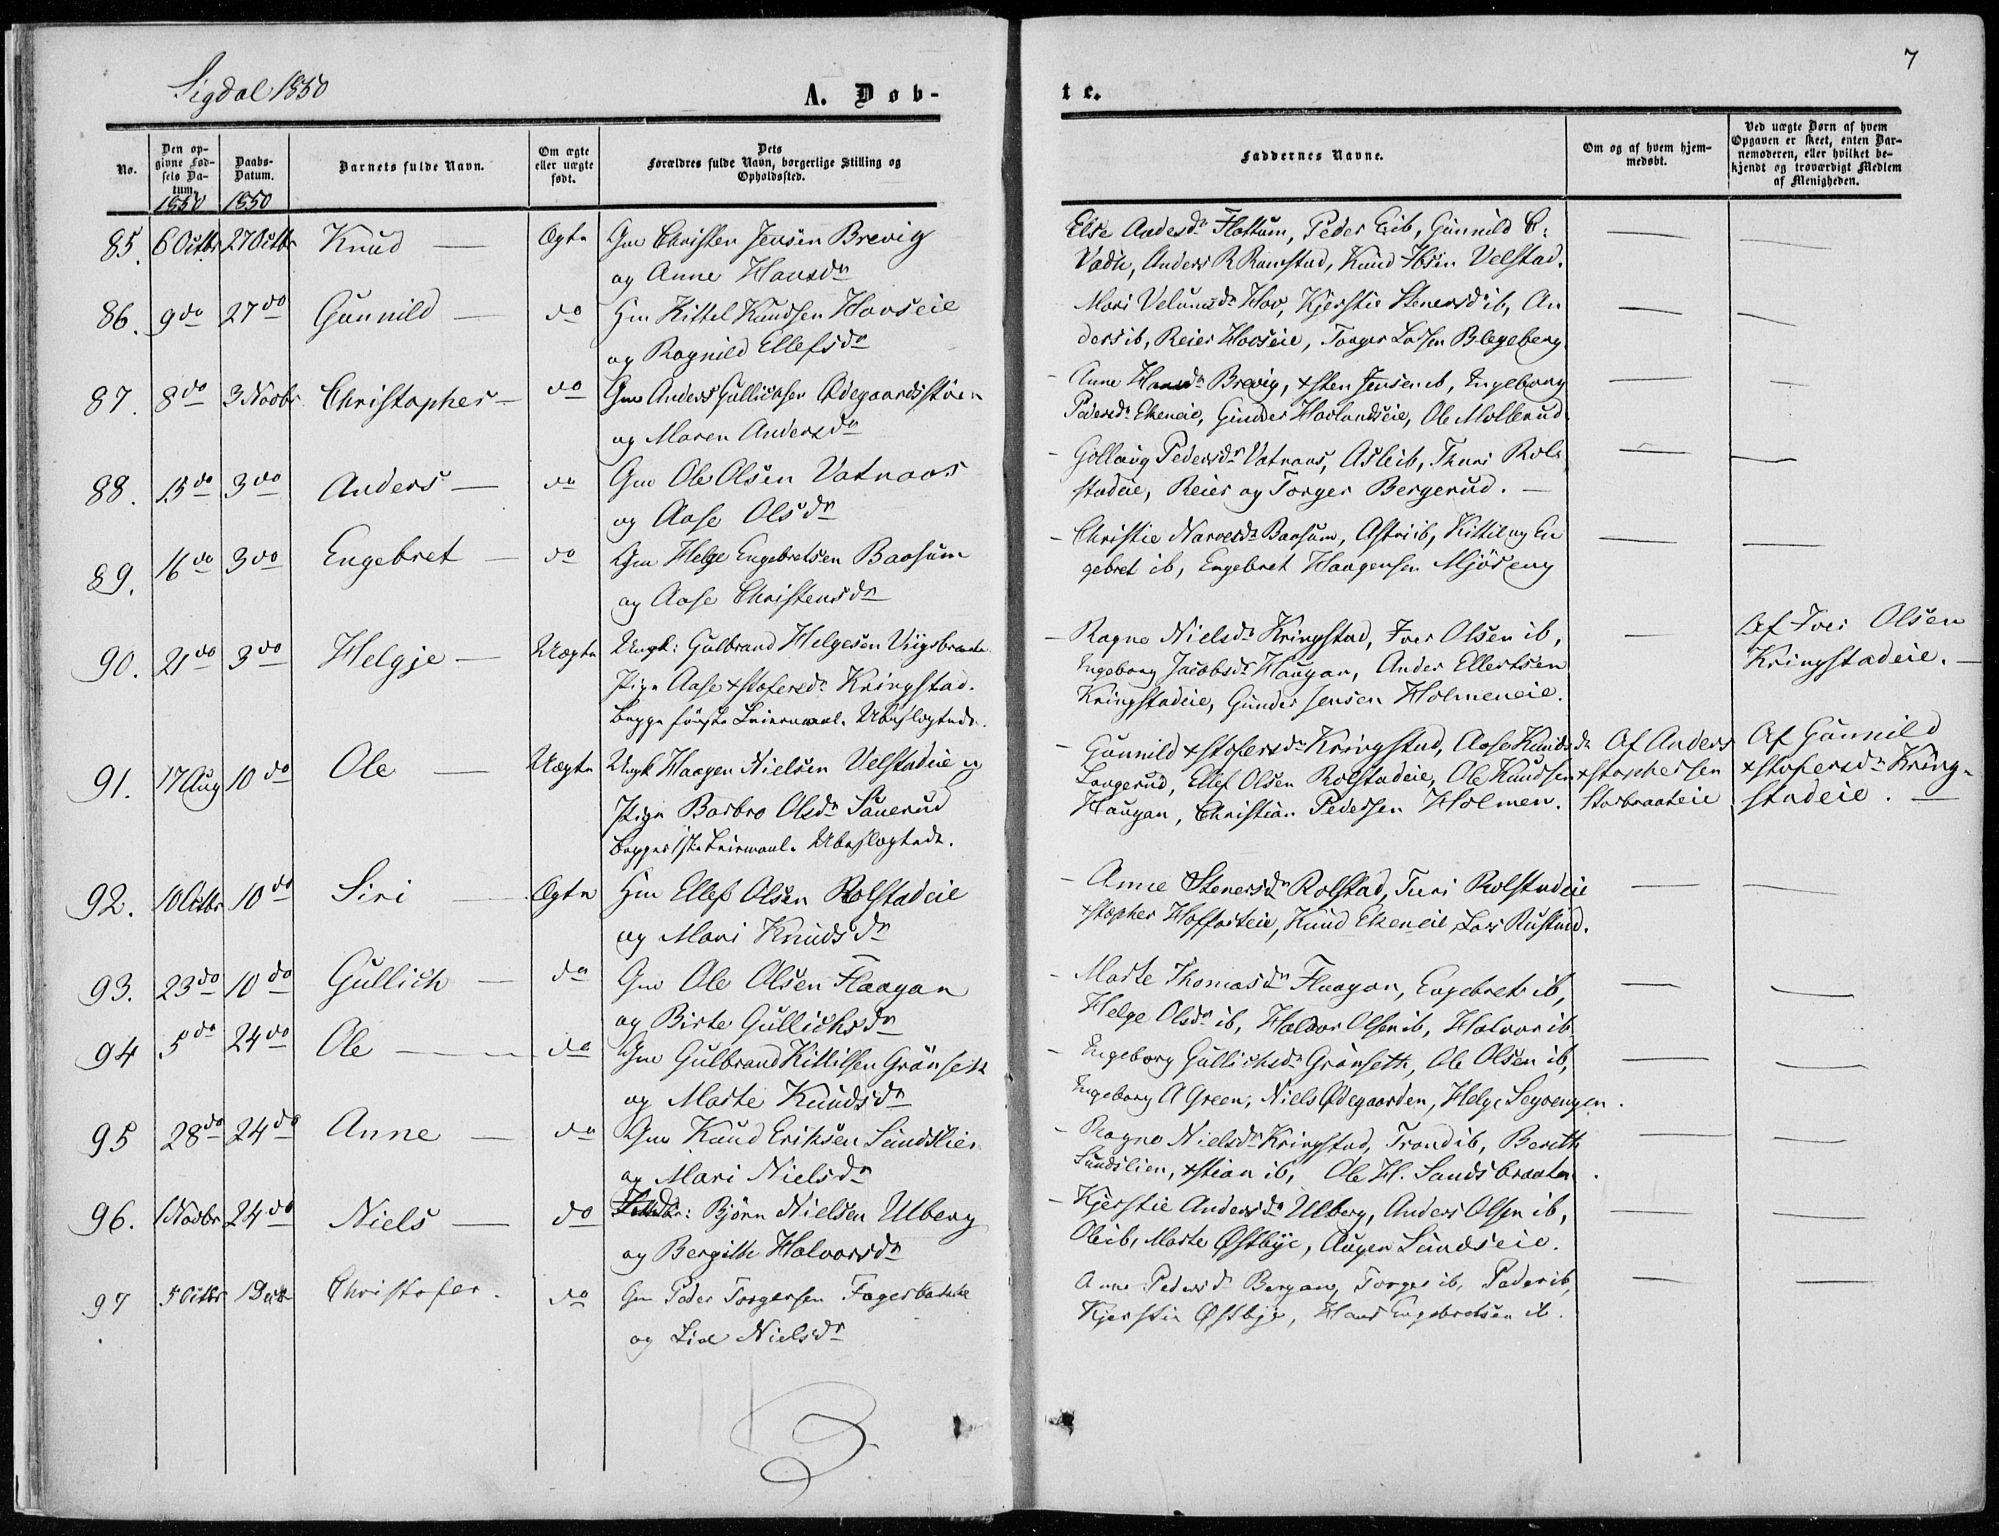 Sigdal 1850
A. Døb-
te.
7
No.
Den op-
givne Fød-
sels Da-
tum.
1850
Daabs-
Datum.
1850
Barnets fulde Navn.
Om ægte
eller uægte
født.
Dets
Forældres fulde Navn, borgerlige Stilling og
Opholdssted.
Faddernes Navne.
Om og af hvem hjem-
medøbt.
Ved uægte Børn af hvem
Opgaven er skeet, enten Bar-
nemoderen, eller hvilket be-
kjendt og troværdigt Medlem
af Menigheden.
85. 6 Octbr 27 Octbr Knud — Ægte Gm Christen Jensen Brevig
og Anne Hansdr
Else Andersdr Flattum, Peder Eib, Gunnild
Anders R Ramstad, Knud Velstad.
86. 9 do 27 do Gunnild — do Hm Kittel Knudsen Hovseie
og Ragnild Ellefsdr
Mari Hov, Kjerstie Stenersdr ib, An
ders ib, Reier Hovseie, Torger Larsen Blegeberg
87. 8 do 3 Novbr Christopher — do Gm Anders Gullichsen Ødegaardsstuen
og Maren Andersdr
Anne Hansdr Brevig, xsten Jensen ib, Ingeborg
Pedersdr Ekeneie, Gunder Hovlandseie, Ole Mollerud
88. 15 do 3 do Anders — do Gm Ole Olsen Vatnaas
og Aase Olsdr
Gollaug Pedersdr Vatnaas, Asle ib, Thuri Rol-
stadeie, Reier og Torger Bergerud. —
89. 16 do 3 do Engebret — do Gm Helge Engebretsen Baasum
og Aase Christensdr
Christie Narvesdr Baasum, Astri ib, Kittil og En
gebret ib, Engebret Haagensen Mjøseng
90. 21 do 3 do Helgje — Uægte Ungk: Gulbrand Helgesen Viigsbraate
Pige Aase xstofersdr Kringstad.
begge første Leiermaal. Ubeslægtede.
Ragne Nielsdr Kringstad, Iver Olsen ib,
Ingeborg Jacobsdr Haugan, Ander Ellertsen
Kringstadeie, Gunder Jensen Holmeneie.
Af Iver Olsen
Kringstadeie. —
91. 17 Aug 10 do Ole — Uægte Ungk Haagen Nielsen Velstadeie og
Pige Barbro Olsdr Sanerud
begges 1ste Leiermaal. Ubeslægtede.
Gunnild xstofersdr Kringstad, Aase Knudsdr
Langerud, Ellef Olsen Rolstadeie, Ole Knudsen
Haugan, Christian Pedersen Holmen.
Af Anders
xstophersen
Storbraateie
Af Gunnild
xstofersdr Kring-
stadeie. —
92. 10 Octbr 10 do Siri — Ægte Hm Ellef Olsen Rolstadeie
og Mari Knudsdr
Anne Stenersdr Rolstad, Turi Rolstadeie
xstopher Hoffarteie, Knud Ekeneie, Lars Rustand.
93. 23 do 10 do Gullich — do Gm Ole Olsen Flaagan
og Birte Gullichsdr
Marte Thomasdr Flaagan, Engebret ib,
Helge Olsdr ib, Haldor Olsen ib, Halvor ib
94 5 do 24 do Ole — do Gm Gulbrand Kittilsen Grønseth
og Marte Knudsdr
Ingeborg Gullichsdr Grønseth, Ole Olsen ib,
Ingeborg A Green, Niels Ødegaarden, Helge
95 28 do 24 do Anne — do Gm Knud Eriksen Sundslien
og Mari Nielsdr
Ragne Nielsdr Kringstad, Trond ib, Berith
Sundslien, xstian ib, Ole H. Sandsbraaten
96. 1 Novbr 24 do Niels — do Bjørn Nielsen Ulberg
og Bergithe Halvorsdr
Kjerstie Andersdr Ulberg, Anders Olsen ib,
Ole ib, Marte Østbye, Augen Sundseie.
97 5 Octbr 1 Dec Christofer. do Gm Peder Torgersen Fagerbakke
og Lise Nielsdr
Anne Pedersdr Bergan, Torger ib, Peder ib,
Kjerstie Østbye, Hans Engebretsen ib.